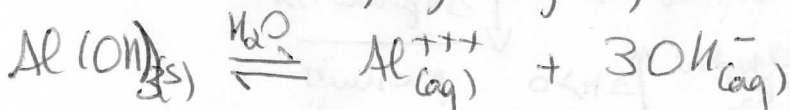 Al(OH)₃(s) ⇌ (H₂O) Al⁺⁺⁺(aq) + 3OH⁻(aq)